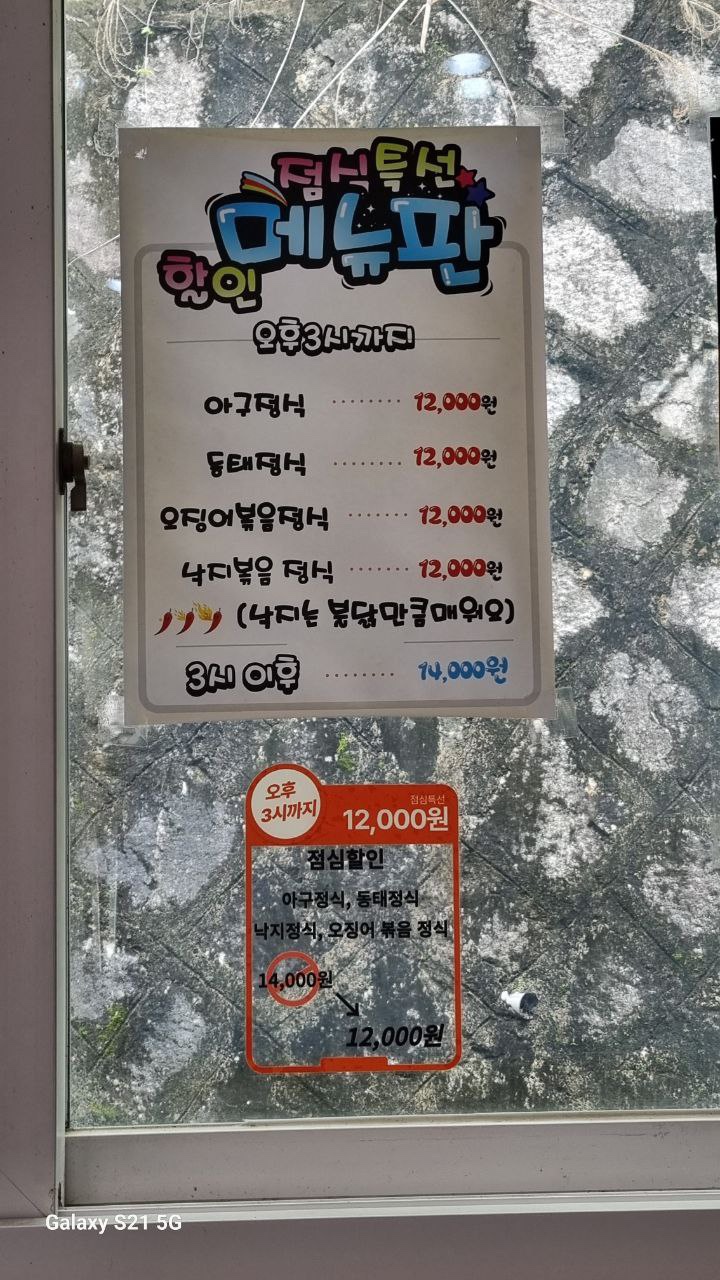 점식특선
메뉴판
할인
오후3시까지
아구정식 ········ 12,000원
동태정식 ········ 12,000원
오징어볶음정식 ······· 12,000원
낙지볶음 정식 ······· 12,000원
(낙지는 불닭만큼매워요)
3시 이후 ········ 14,000원
오후
3시까지
점심특선
12,000원
점심할인
아구정식, 동태정식
낙지정식, 오징어 볶음 정식
14,000원
12,000원
Galaxy S21 5G